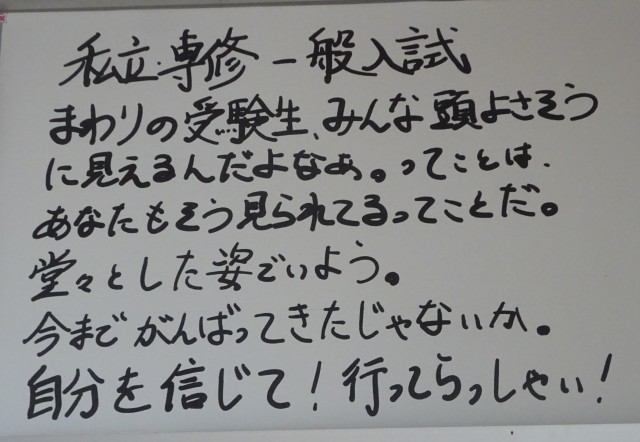 私立・専修一般入試
まわりの受験生、みんな頭よさそう
に見えるんだよなぁ。ってことは、
あなたもそう見られてるってことだ。
堂々とした姿でいよう。
今までがんばってきたじゃないか。
自分を信じて！行ってらっしゃい！